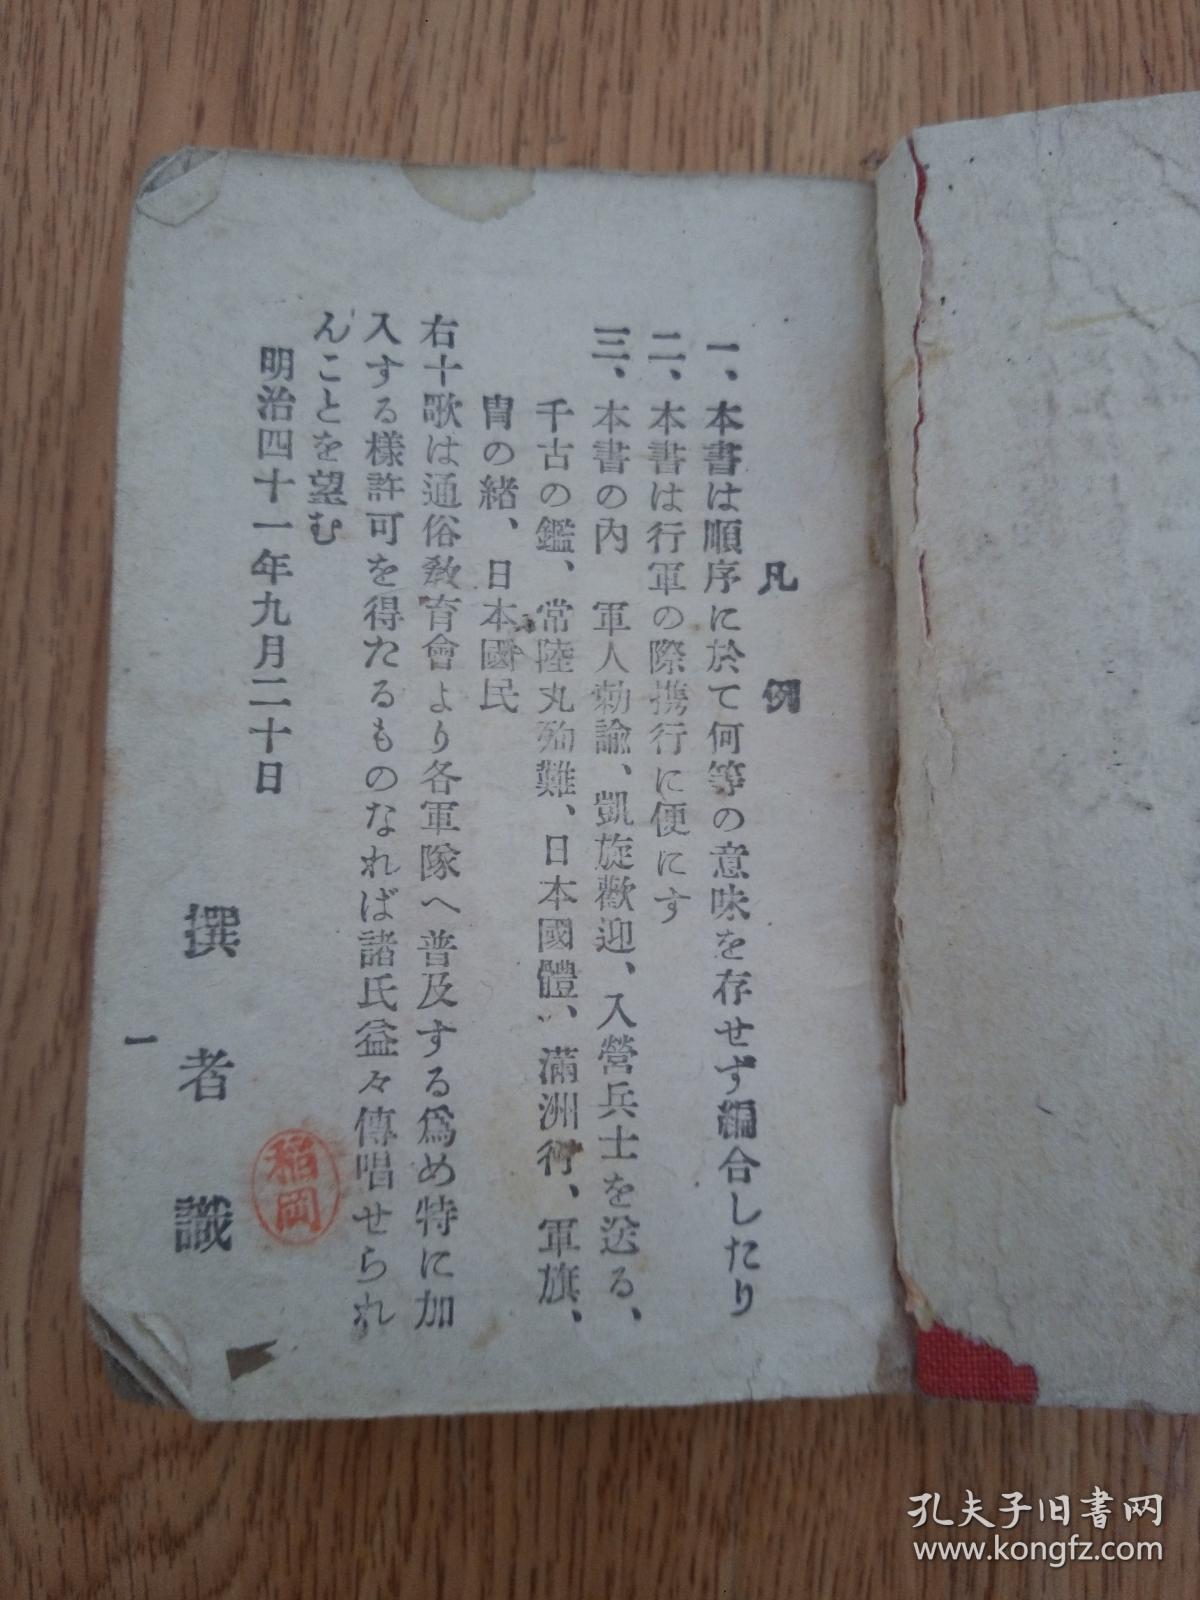 凡例
一、本書は順序に於て何等の意味を存せず編合したり
二、本書は行軍の際携行に便にす
三、本書の內　軍人勅諭、凱旋歡迎、入營兵士を送る、
千古の鑑、常陸丸殉難、日本國體、滿洲行、軍旗、
冑の緖、日本國民
右十歌は通俗敎育會より各軍隊へ普及する爲め特に加
入する樣許可を得たるものなれば諸氏益々傳唱せられ
んことを望む
明治四十一年九月二十日
撰者識
稲岡
一
孔夫子旧书网
www.kongfz.com